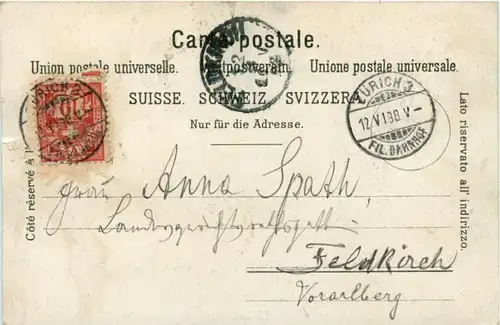 Carte postale.
Union postale universelle. Weltpostverein. Unione postale universale.
SUISSE. SCHWEIZ. SVIZZERA.
Nur für die Adresse.
Côté réservé à l'
Lato riservato all' indirizzo.
ZÜRICH 3
FIL. BAHNHOF
Frau Anna Spath,
Landesgerichtsrathsgatt
Feldkirch
Vorarlberg